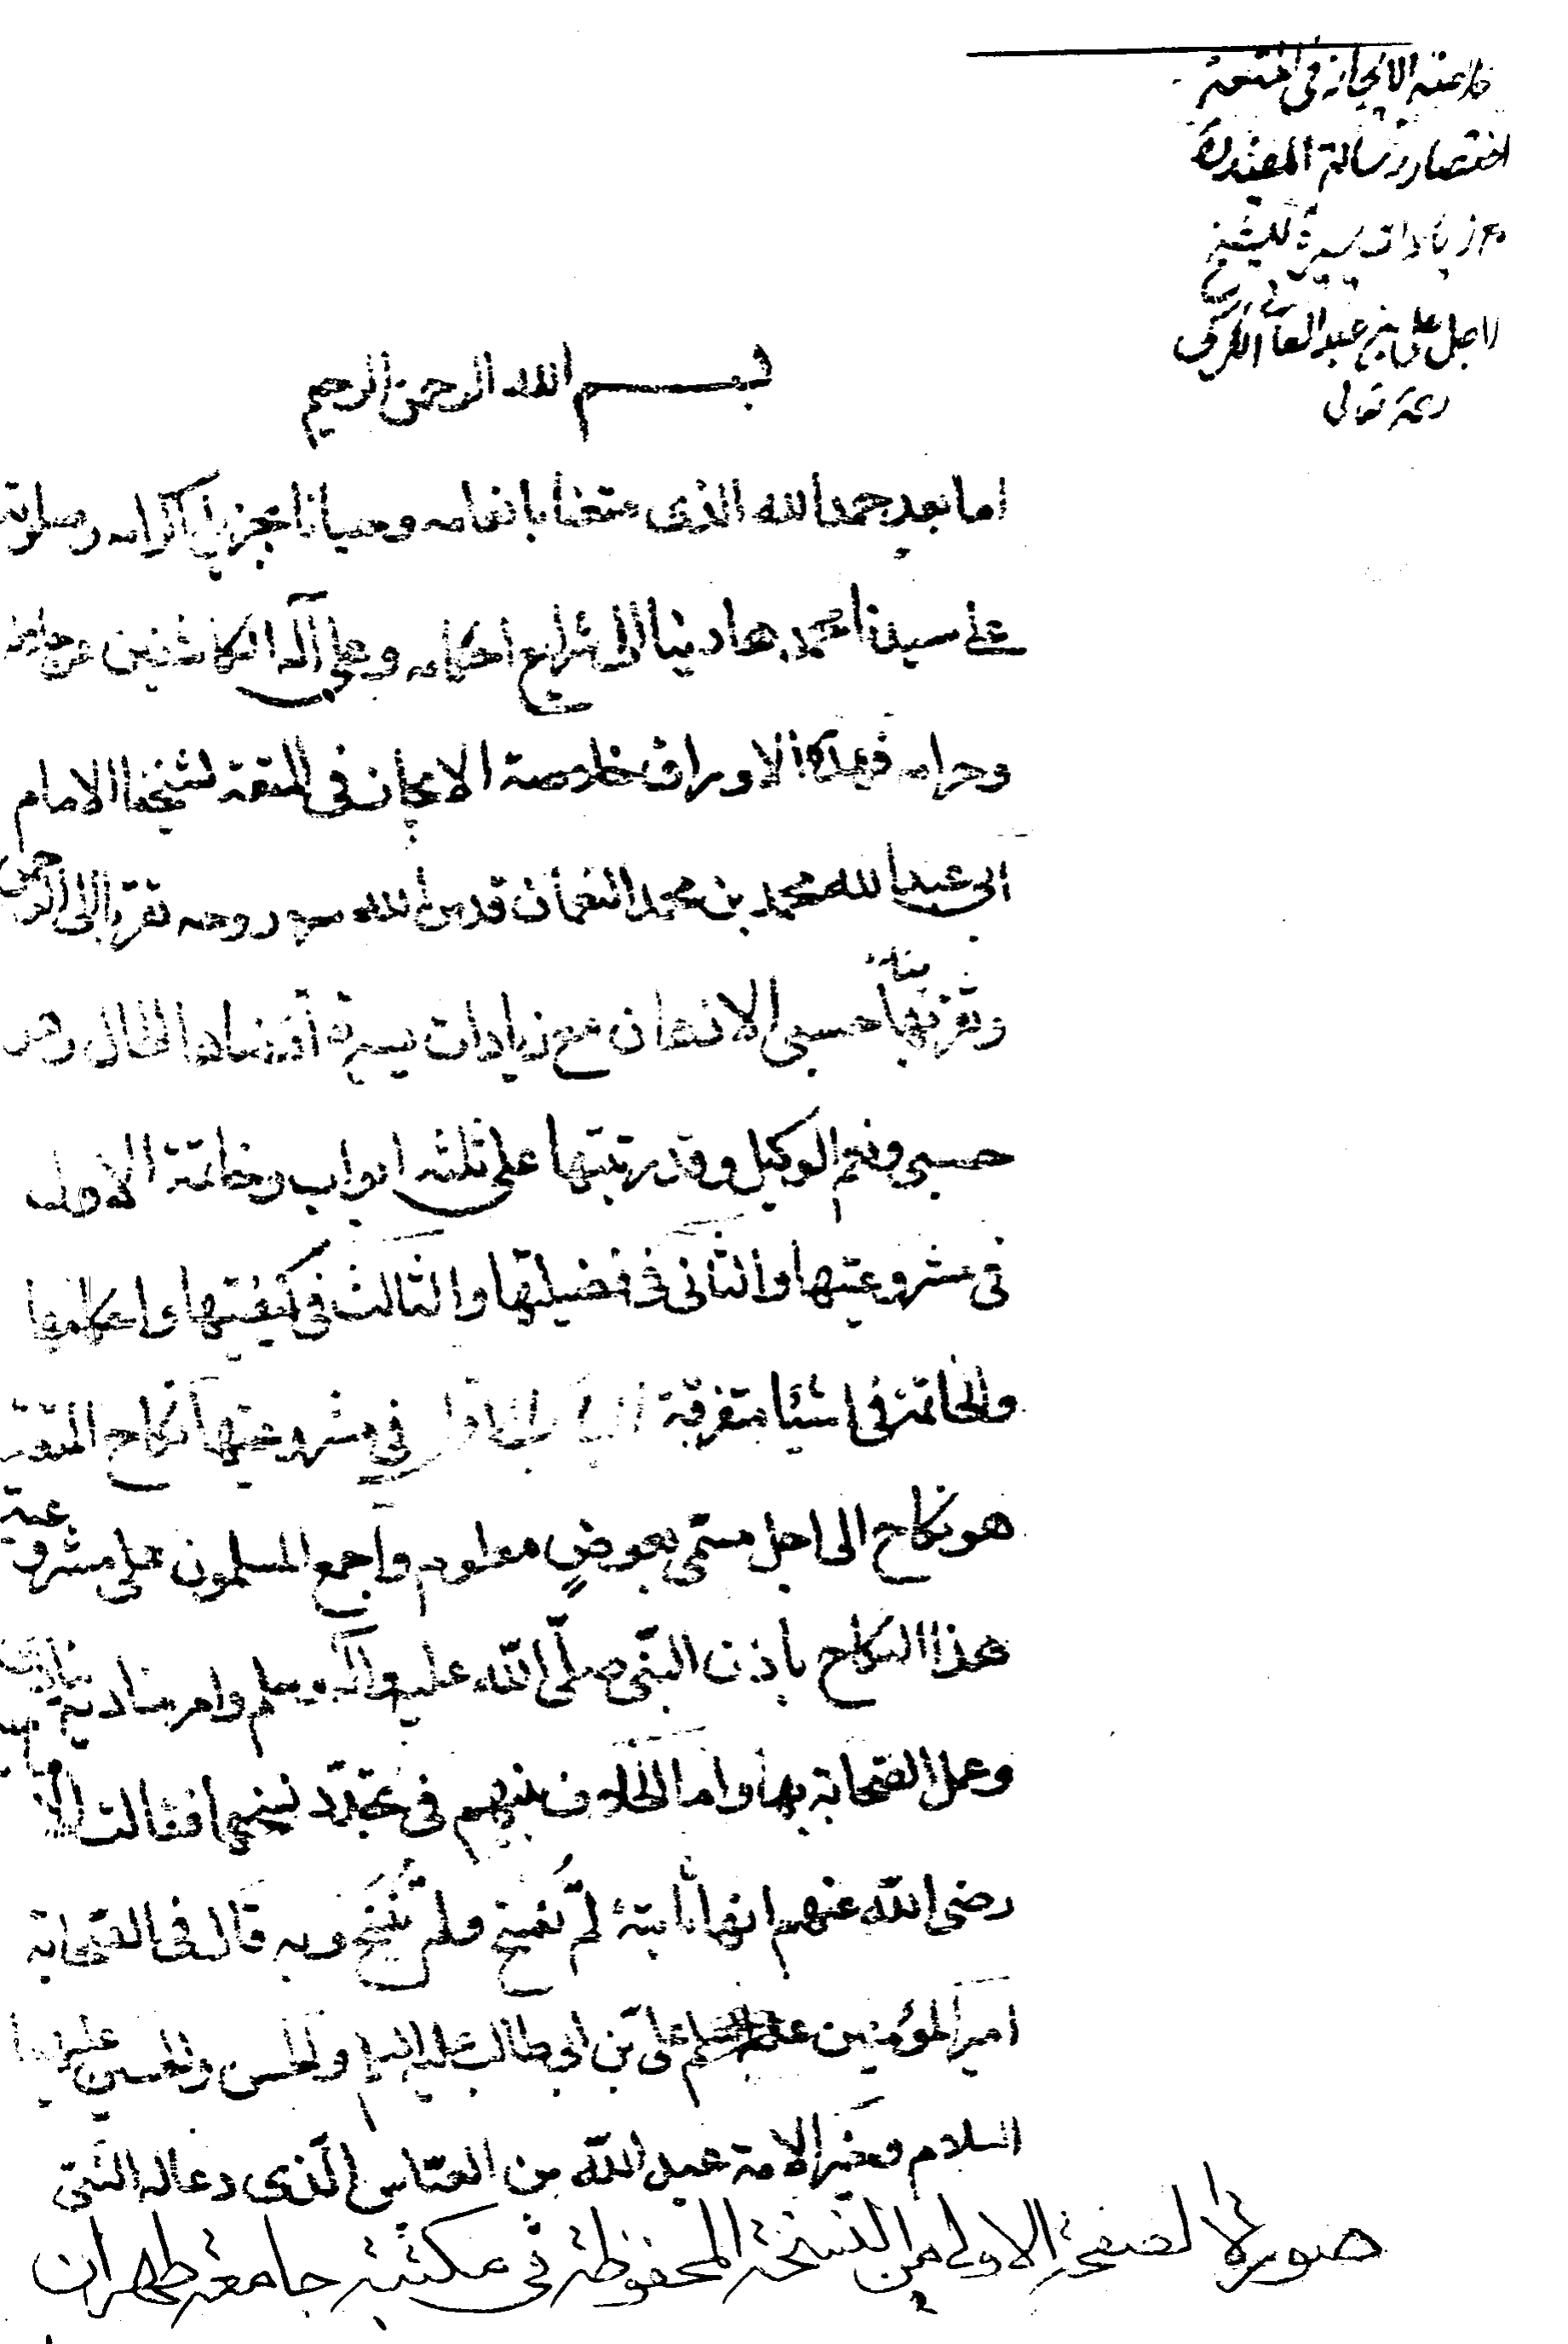 خلاصة الايجاز في المتعة
اختصار رسالة المفيد ره
مع زيادات يسيرة للشيخ
الاجل علي بن عبد العالي الكركي
رحمة تعالى
بسم الله الرحمن الرحيم
اما بعد حمدا لله الذي متعنا بانعامه وحبانا بجزيل اكرامه وصلوته
على سيدنا محمد هادينا الى شرايع احكامه وعلى آله الكاشفين عن حلاله
وحرامه فهذه الاوراق خلاصة الايجاز في المتعة لشيخنا الامام
ابي عبد الله محمد بن محمد النعمان قدس الله سره روحه تقربا الى الرحمن
وتقريبا حسبي الاذهان مع زيادات يسيرة اقتضاها الحال وهو
حسبي ونعم الوكيل وقد رتبتها على ثلثه ابواب وخاتمة الاول
في مشروعيتها والثاني في فضيلتها والثالث في كيفيتها واحكامها
والخاتمة في اشيئا متفرقة الباب الاول في مشروعيتها نكاح المتعة
هو نكاح الى اجل مسمّى بعوضٍ معلوم واجمع المسلمون على مشروعية
هذا النكاح باذن النبّي صلّى اللّه عليه وآله وسلم وامر مناديه ينادي
وعمل الصّحابة بها وانما الخلاف بينهم في تجدّد نسخها فقالت
رضى اللّه عنهم انها ثابتة لم تُفسخ ولم تُنسخ وبه قال في الصّحابة
امير المؤمنين علي بن ابي طالب عليه السلام والحسن والحسين عليهما
السلام وحبر الامة عبد اللّه بن العبّاس الّذي دعا له النّبّي
صورة الصفحة الاولى من النسخة المحفوظة في مكتبة جامعة طهران